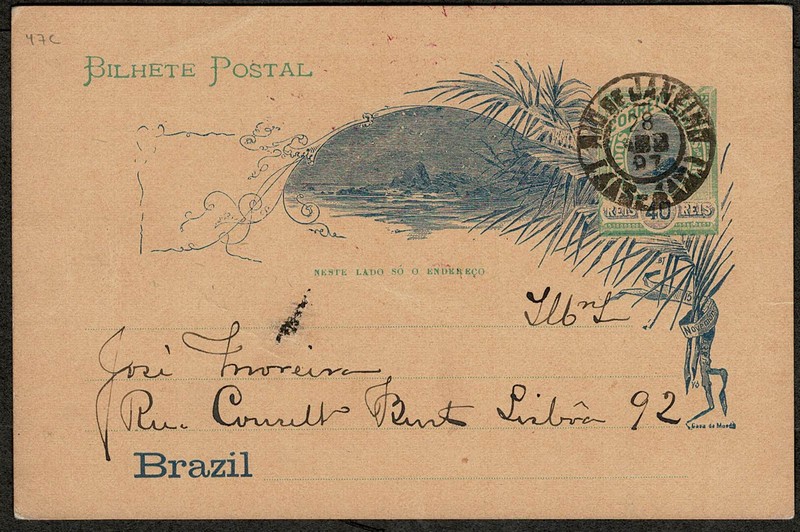 47c
BILHETE POSTAL
RIO DE JANEIRO
8
97
REIS 40 REIS
NESTE LADO SÓ O ENDEREÇO
15
Novembro
José Moreira
Rua Bent Lisbôa 92
Casa da Moeda
Brazil